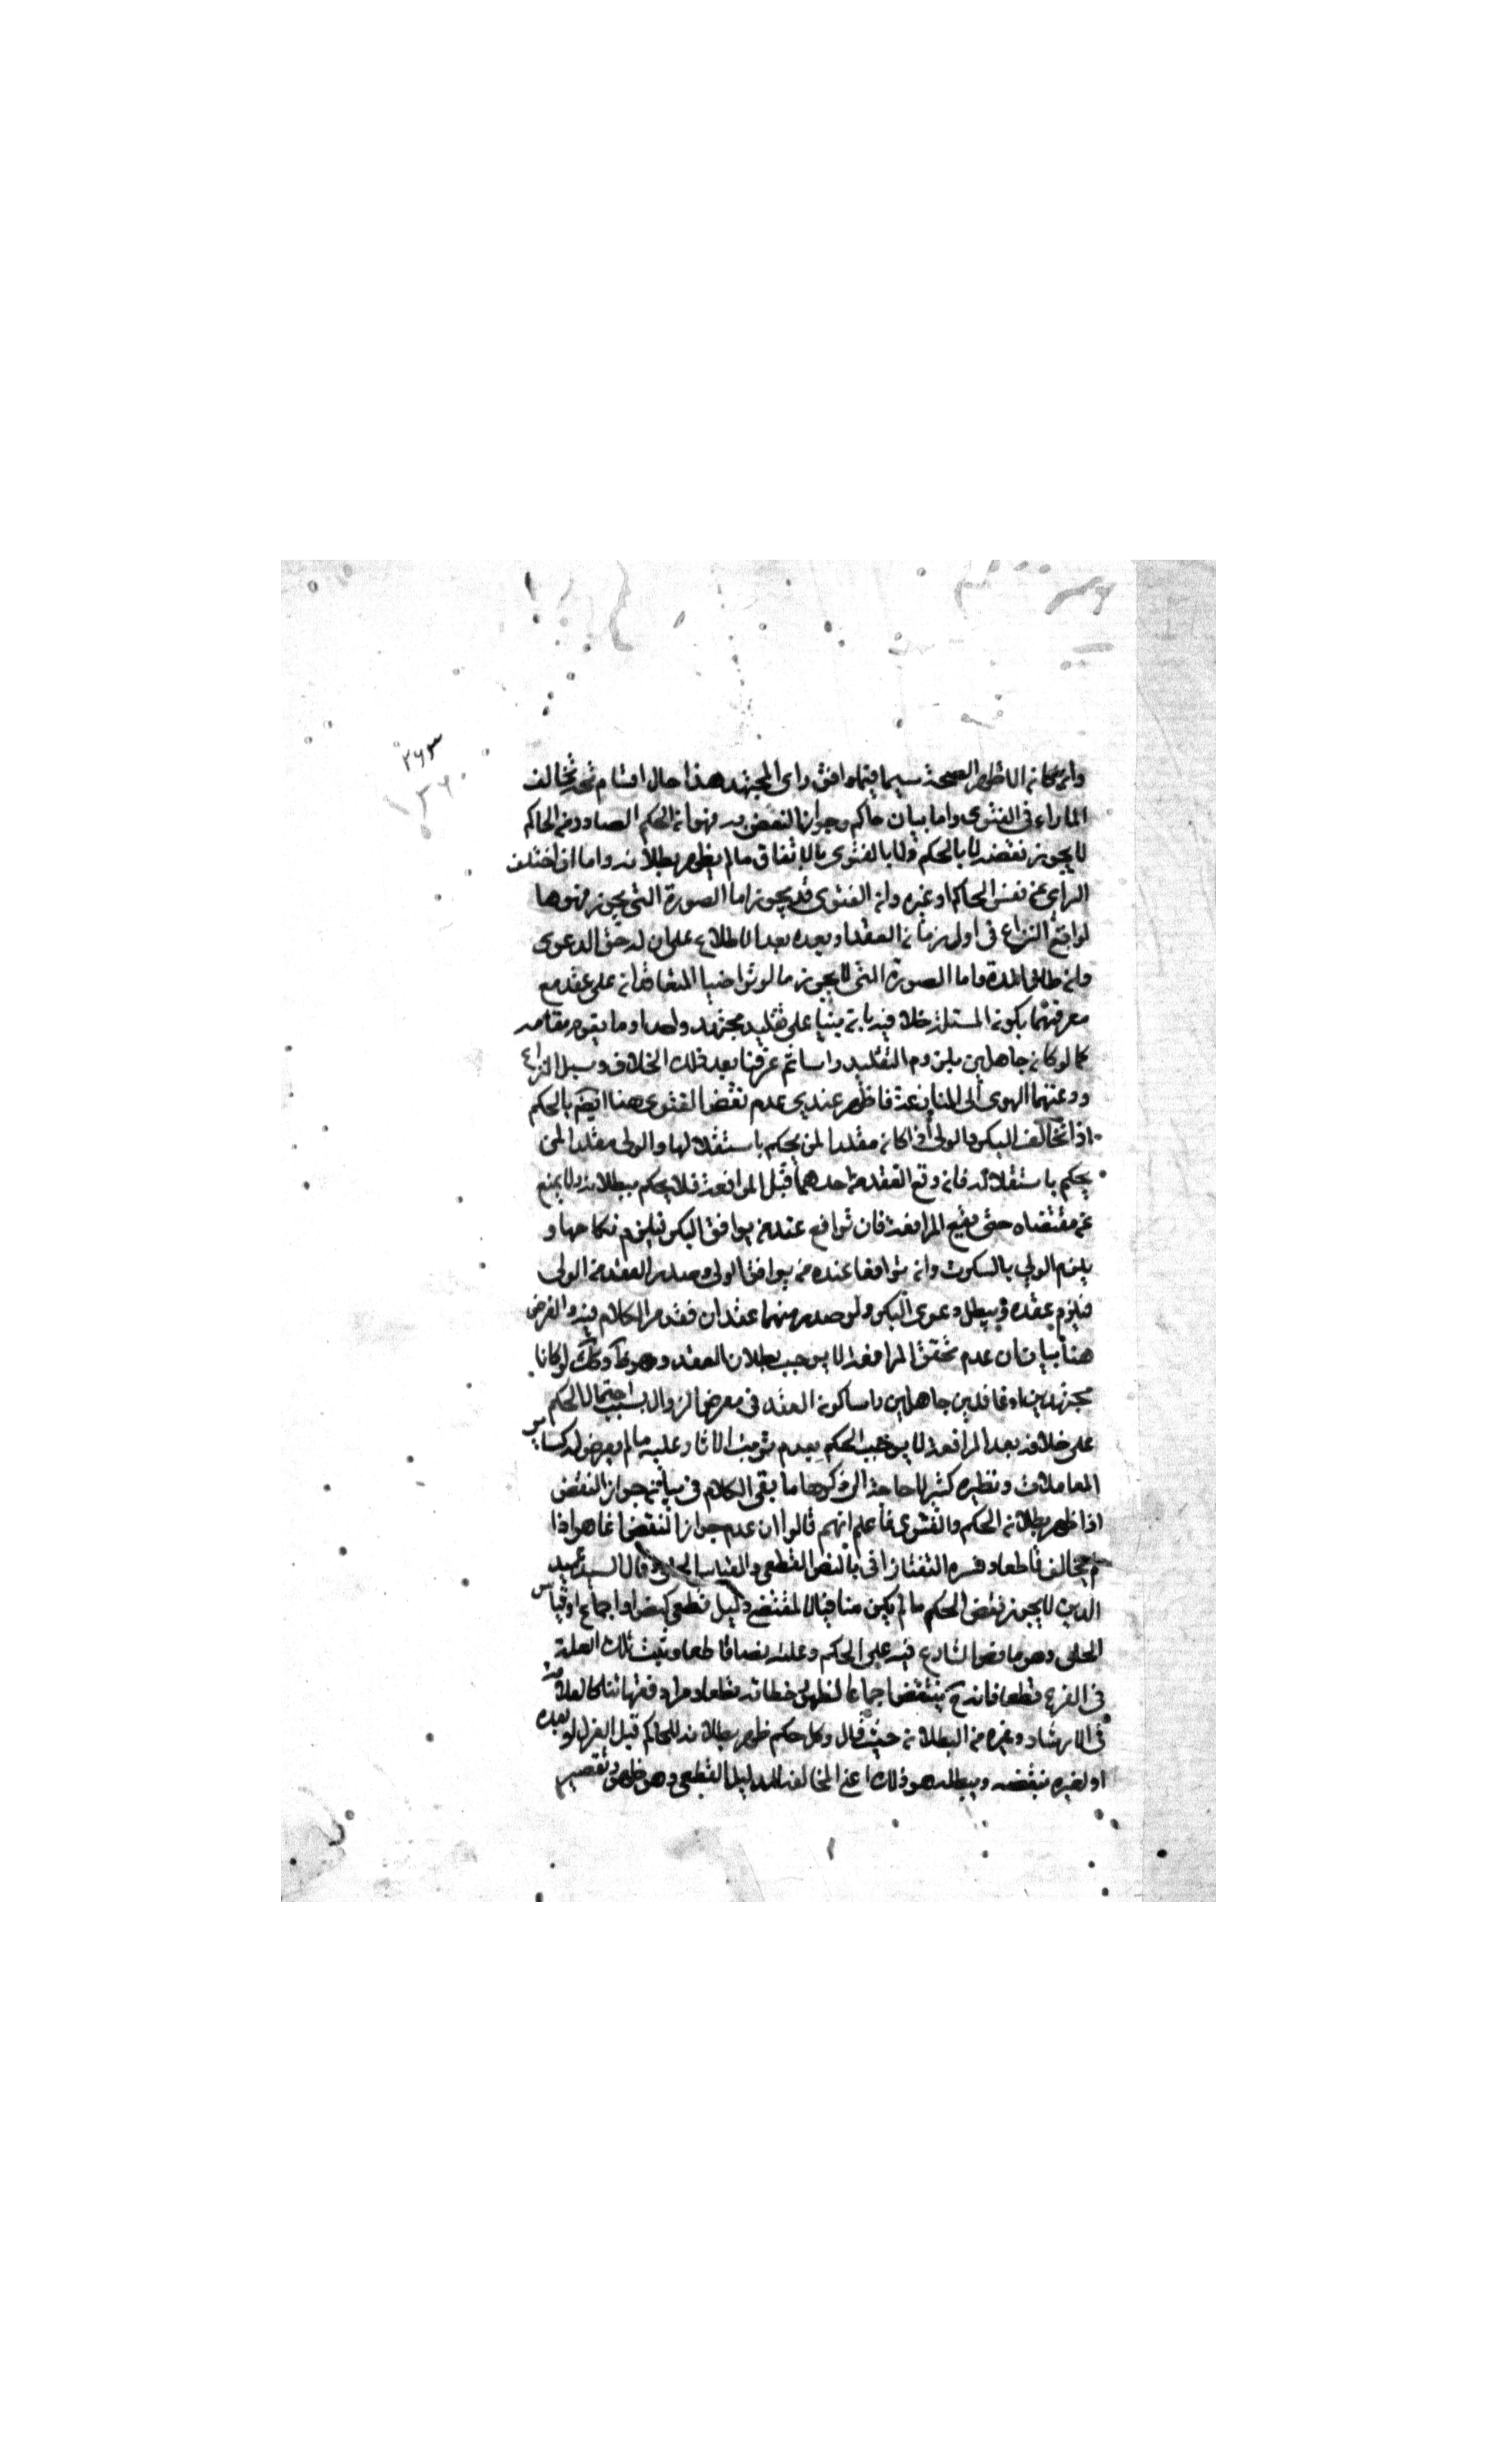 ٢٦٣
وان كان الاظهر الصحة سيما فيما وافق راى المجتهد هذا حال اقسام تخالف
الاراء فى الفتوى واما بيان حاكم وجواز النقض فهو ان الحكم الصادر من الحاكم
لا يجوز نقضه لا بالحكم ولا بالفتوى بالاتفاق ما لم يظهر بطلانه واما ان اختلف
الراى عن نفس الحاكم او غيره وان الفتوى قد يجوز اما الصورة التى يجوز فهو ما
لو اقع النزاع فى اول زمان العقد او بعده بعد الاطلاع على ان له حق الدعوى
وان طال المدة واما الصورة التى لا يجوز ما لو تراضيا المتعاقدان على عقد مع
معرفتهما بكون المسئلة خلافية بانه مبنيا على تقليد مجتهد واحد او ما يقوم مقامه
كما لو كان جاهلين بلزوم التقليد راسا ثم عرفنا بعد ذلك الخلاف وسبل النزاع
ودعتهما الهوى الى المنازعة فاظهر عندى عدم نقض الفتوى هنا ايضا بالحكم
اذا تخالف البكر والولى اذا كان مقلدا لمن يحكم باستقلالها والولى مقلدا لمن
يحكم باستقلاله فان وقع العقد من احدهما قبل المرافعة فلا يحكم ببطلانه ولا يمنع
عن مقتضاه حتى يقع المرافعة فان ترافع عند من يوافق البكر فيلزم نكاحها و
يلزم الولى بالسكوت وان ترافعا عنده من يوافق الولى وصدر العقد من الولى
فيلزم عقده ويبطل دعوى البكر ولو صدر منهما عقدان فقد مر الكلام فيه والغرض
هنا بيان ان عدم تحقق المرافعة لا يوجب بطلان العقد وهو وكك لو كانا
مجتهدين او غافلين جاهلين راسا كون العقد فى معرض الزوال بسبب احتمال الحكم
على خلافه بعد المرافعة لا يوجب الحكم بعدم ترتب الاثار عليه ما لم يعرض له كساير
المعاملات ونظيره كثير لا حاجة الى ذكرها ما بقى الكلام فى بيان جواز النقض
اذا ظهر بطلان الحكم والفتوى فاعلم انهم قالوا ان عدم جواز النقض انما هو اذا
لم يخالف قاطعا وفسره التفتازانى بالنص القطعى والقياس الجلى وقال السيد عميد
الدين لا يجوز نقض الحكم ما لم يكن منافيا لمقتضى دليل قطعى كنص او اجماع او قياس
الجلى وهو ما نص الشارع فيه على الحكم وعلته نصا قاطعا وثبت تلك العلة
فى الفرع قطعا فانه ح ينتقض اجماعا لظهور خطائه قطعا ومراد فقهائنا كالعلامة
فى الارشاد وغيره من البطلان حيث قال وكل حكم ظهر بطلانه للحاكم قبل العزل او بعده
او لغيره ينقضه ويبطله هو ذلك اعنى المخالفة للدليل القطعى وهو ظهور تقصير